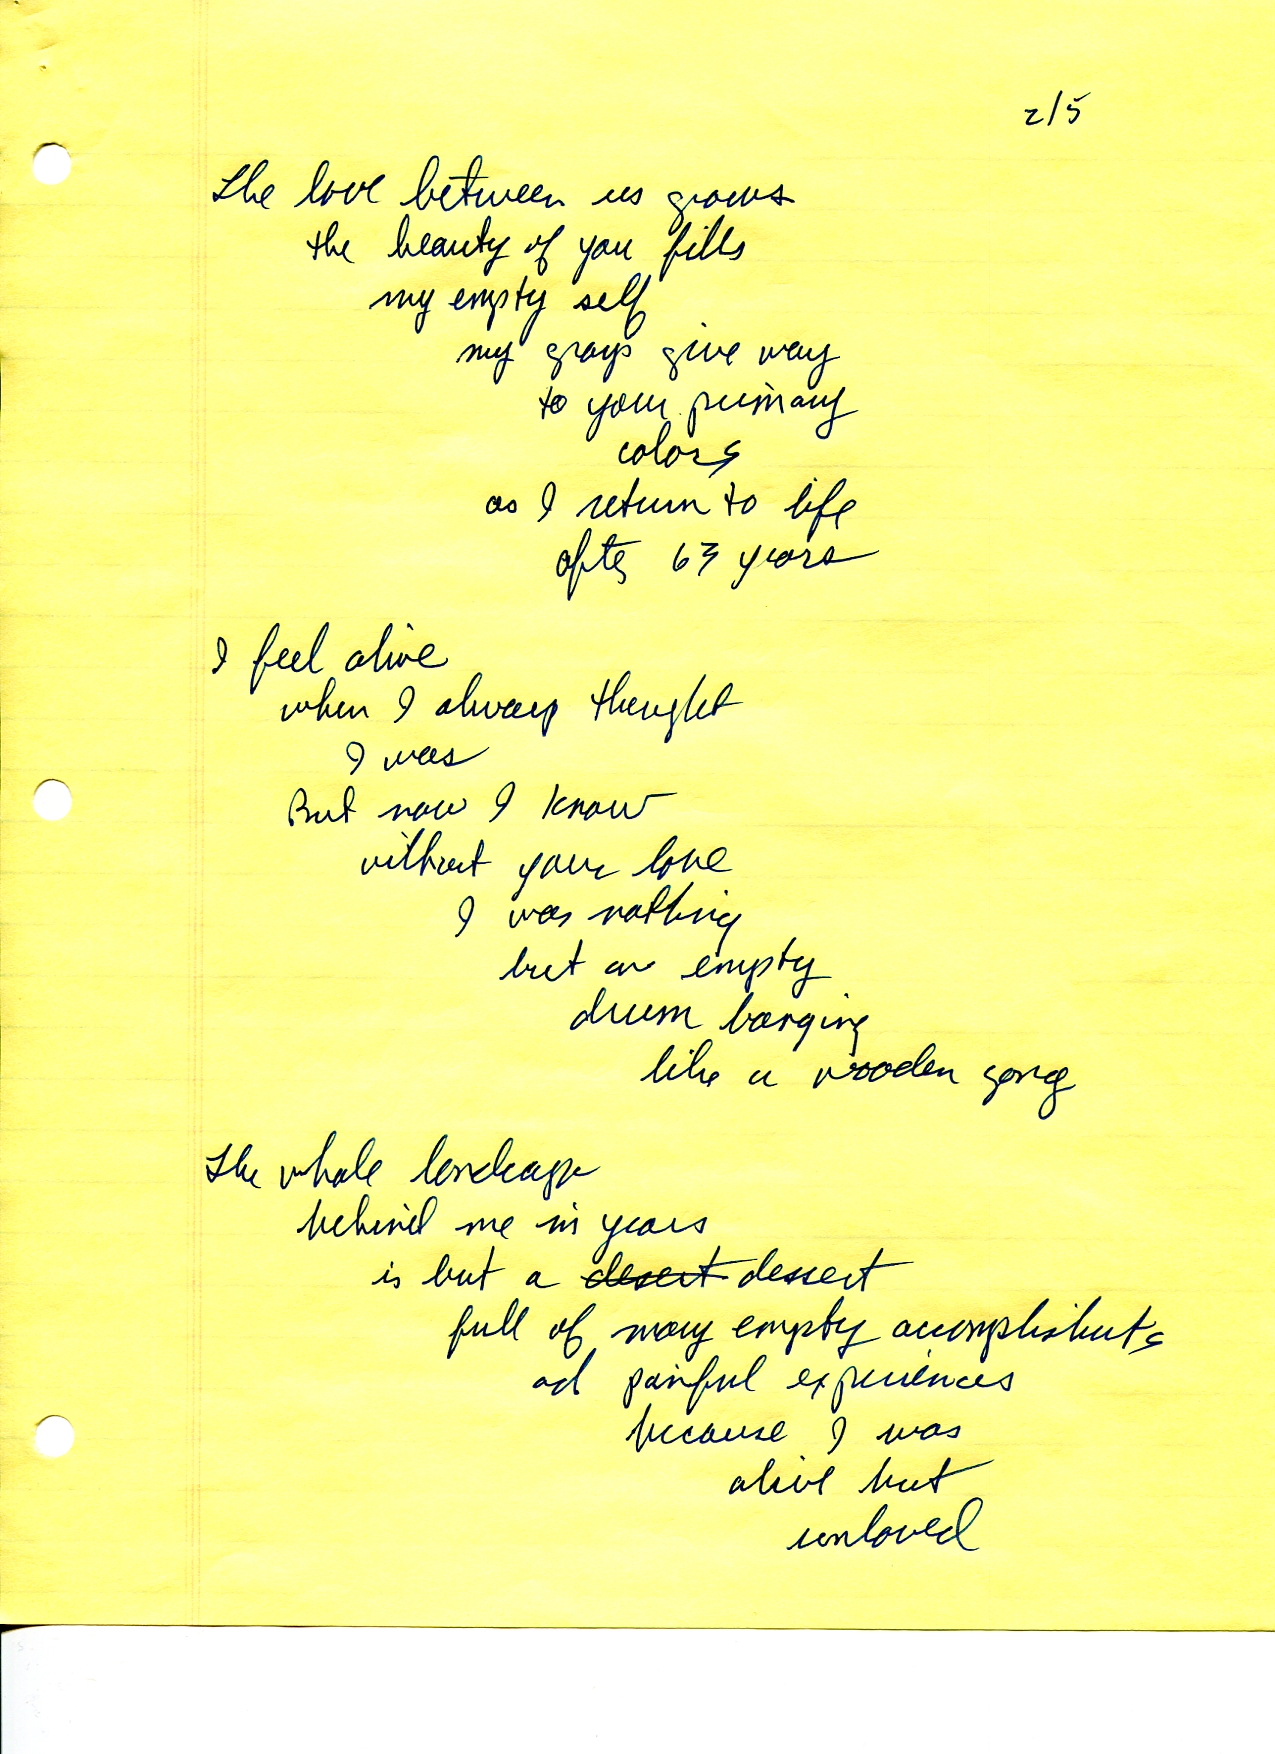 2/5
The love between us grows
the beauty of you fills
my empty self
my grays give way
to your primary
colors
as I return to life
after 63 years
I feel alive
when I always thought
I was
But now I know
without your love
I was nothing
but an empty
drum banging
like a wooden gong
The whole landcape
behind me in years
is but a desert dessert
full of many empty accomplishents
ad painful experiences
because I was
alive but
unloved